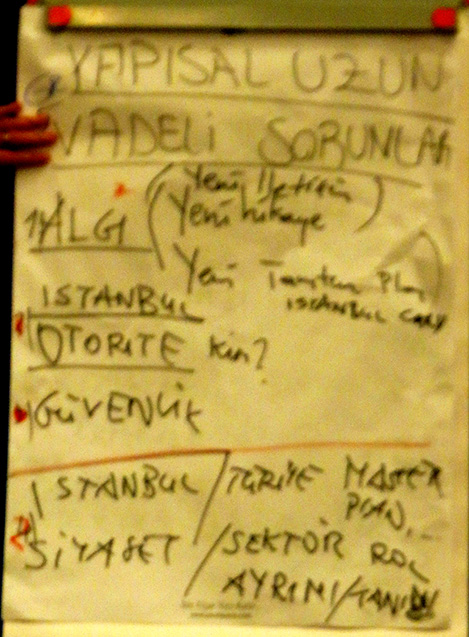 YAPISAL UZUN
VADELİ SORUNLAR
(Yeni İletişim
ALGI Yeni hikaye)
Yeni Tanıtım Plan
İSTANBUL
OTORİTE Kim?
GÜVENLİK
İSTANBUL / TÜRİYE MASTER
PLAN...
SİYASET / SEKTÖR ROL
AYRIMI/TANIMI